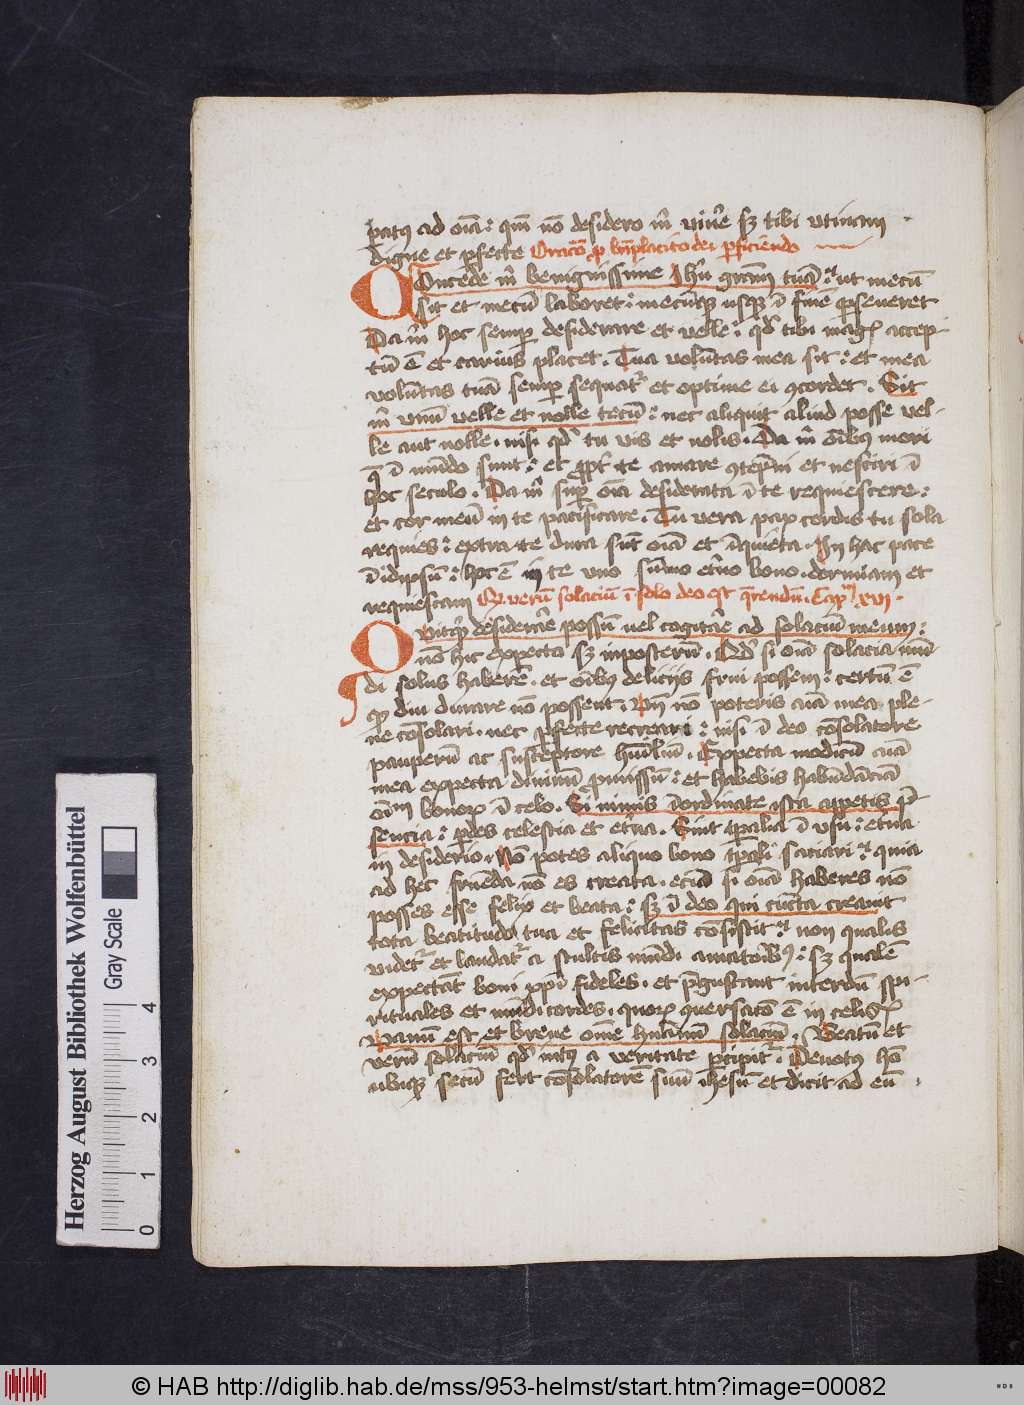 patꝯ ad oīa: qm̄ nō desidero m̄ viu̾e sꝫ tibi vtinam
digne et ꝑfecte Oracō ꝓ bn̄placito dei ꝑficiendo
Concede m̄ benignissime Jhū grām tuā: ut mecū
sit et mecū laboret: mecūqꝫ usqꝫ ī finē ꝑseueret
Da m̄ hoc semꝑ desiderare et velle: qd̾ tibi magꝭ accep-
tū ē et carius placet. Tua volūtas mea sit: et mea
volūtas tuā semꝑ sequat̾ et optime ei ꝯcordet. Sit
m̄ vnū velle et nolle tecū: nec aliquit aliud posse vel-
le aut nolle. nisi qd̾ tu vis et nolis. Da m̄ oībꝯ mori
q̄ ī mūdo sunt: et ꝓpt̾ te amare ꝯtēpni et nesciri ī
hoc seculo. Da m̄ suꝑ oīa desiderata ī te requiescere:
et cor meū in te pacificare. Tu vera pax cordis tu sola
requies: extra te dura sūt oīa et īquieta. In hac pace
ī idipsū: hoc ē in te vno sūmo et̾no bono. dormiam et
requiescam Qꝫ verū solaciū ī solo deo est q̄rendū. Capᵐ xvi.
Quitqͥd desiderāre possū vel cogitāre ad solaciū meum:
nō hic expecto sꝫ inposterū. Qd̾ si oīa solacia mū-
di solus haberē. et oībꝯ deliciis frui possem: certū ē
qꝫ diu durare nō possent. Vn̄ nō poteris aīa mea ple-
ne cōsolari. nec ꝑfecte recreari: nisi ī deo cōsolatore
pauperū ac susceptore humiliū. Expecta modicū aīa
mea expecta diuinū ꝓmissū: et habebis habūdāciā
oīm bonoꝝ ī celo. Si nimis īordinate ista appetis p̄-
sencia: ꝑdes celestia et et̾na. Sint tꝑalia ī vsu: et̾na
in desiderio. Nō potes aliquo bono tꝑali saciari: quia
ad hec fruēda nō es creata. eciā si oīa haberes nō
posses esse felix et beata: sꝫ ī deo qui cūcta creauit
tota beatitudo tua et felicitas cōsistit: non qualis
videt̾ et laudat̾ a stultis mūdi amatoribꝯ: sꝫ qualē
expectāt boni xp̄i fideles. et p̄gustant interdū spi-
rituales et mūdi cordes. quoꝝ ꝯuersacō ē in celis
Vanū est et breue omē humanū solaciū. Beatū et
verū solaciū qd̾ intꝯ a veritate ꝑcipit̾. Deuotꝯ hō
ubiqꝫ secū fert cōsolatorē suū ihesū et dicit ad eū.
Herzog August Bibliothek Wolfenbüttel
Gray Scale
0 1 2 3 4
© HAB http://diglib.hab.de/mss/953-helmst/start.htm?image=00082